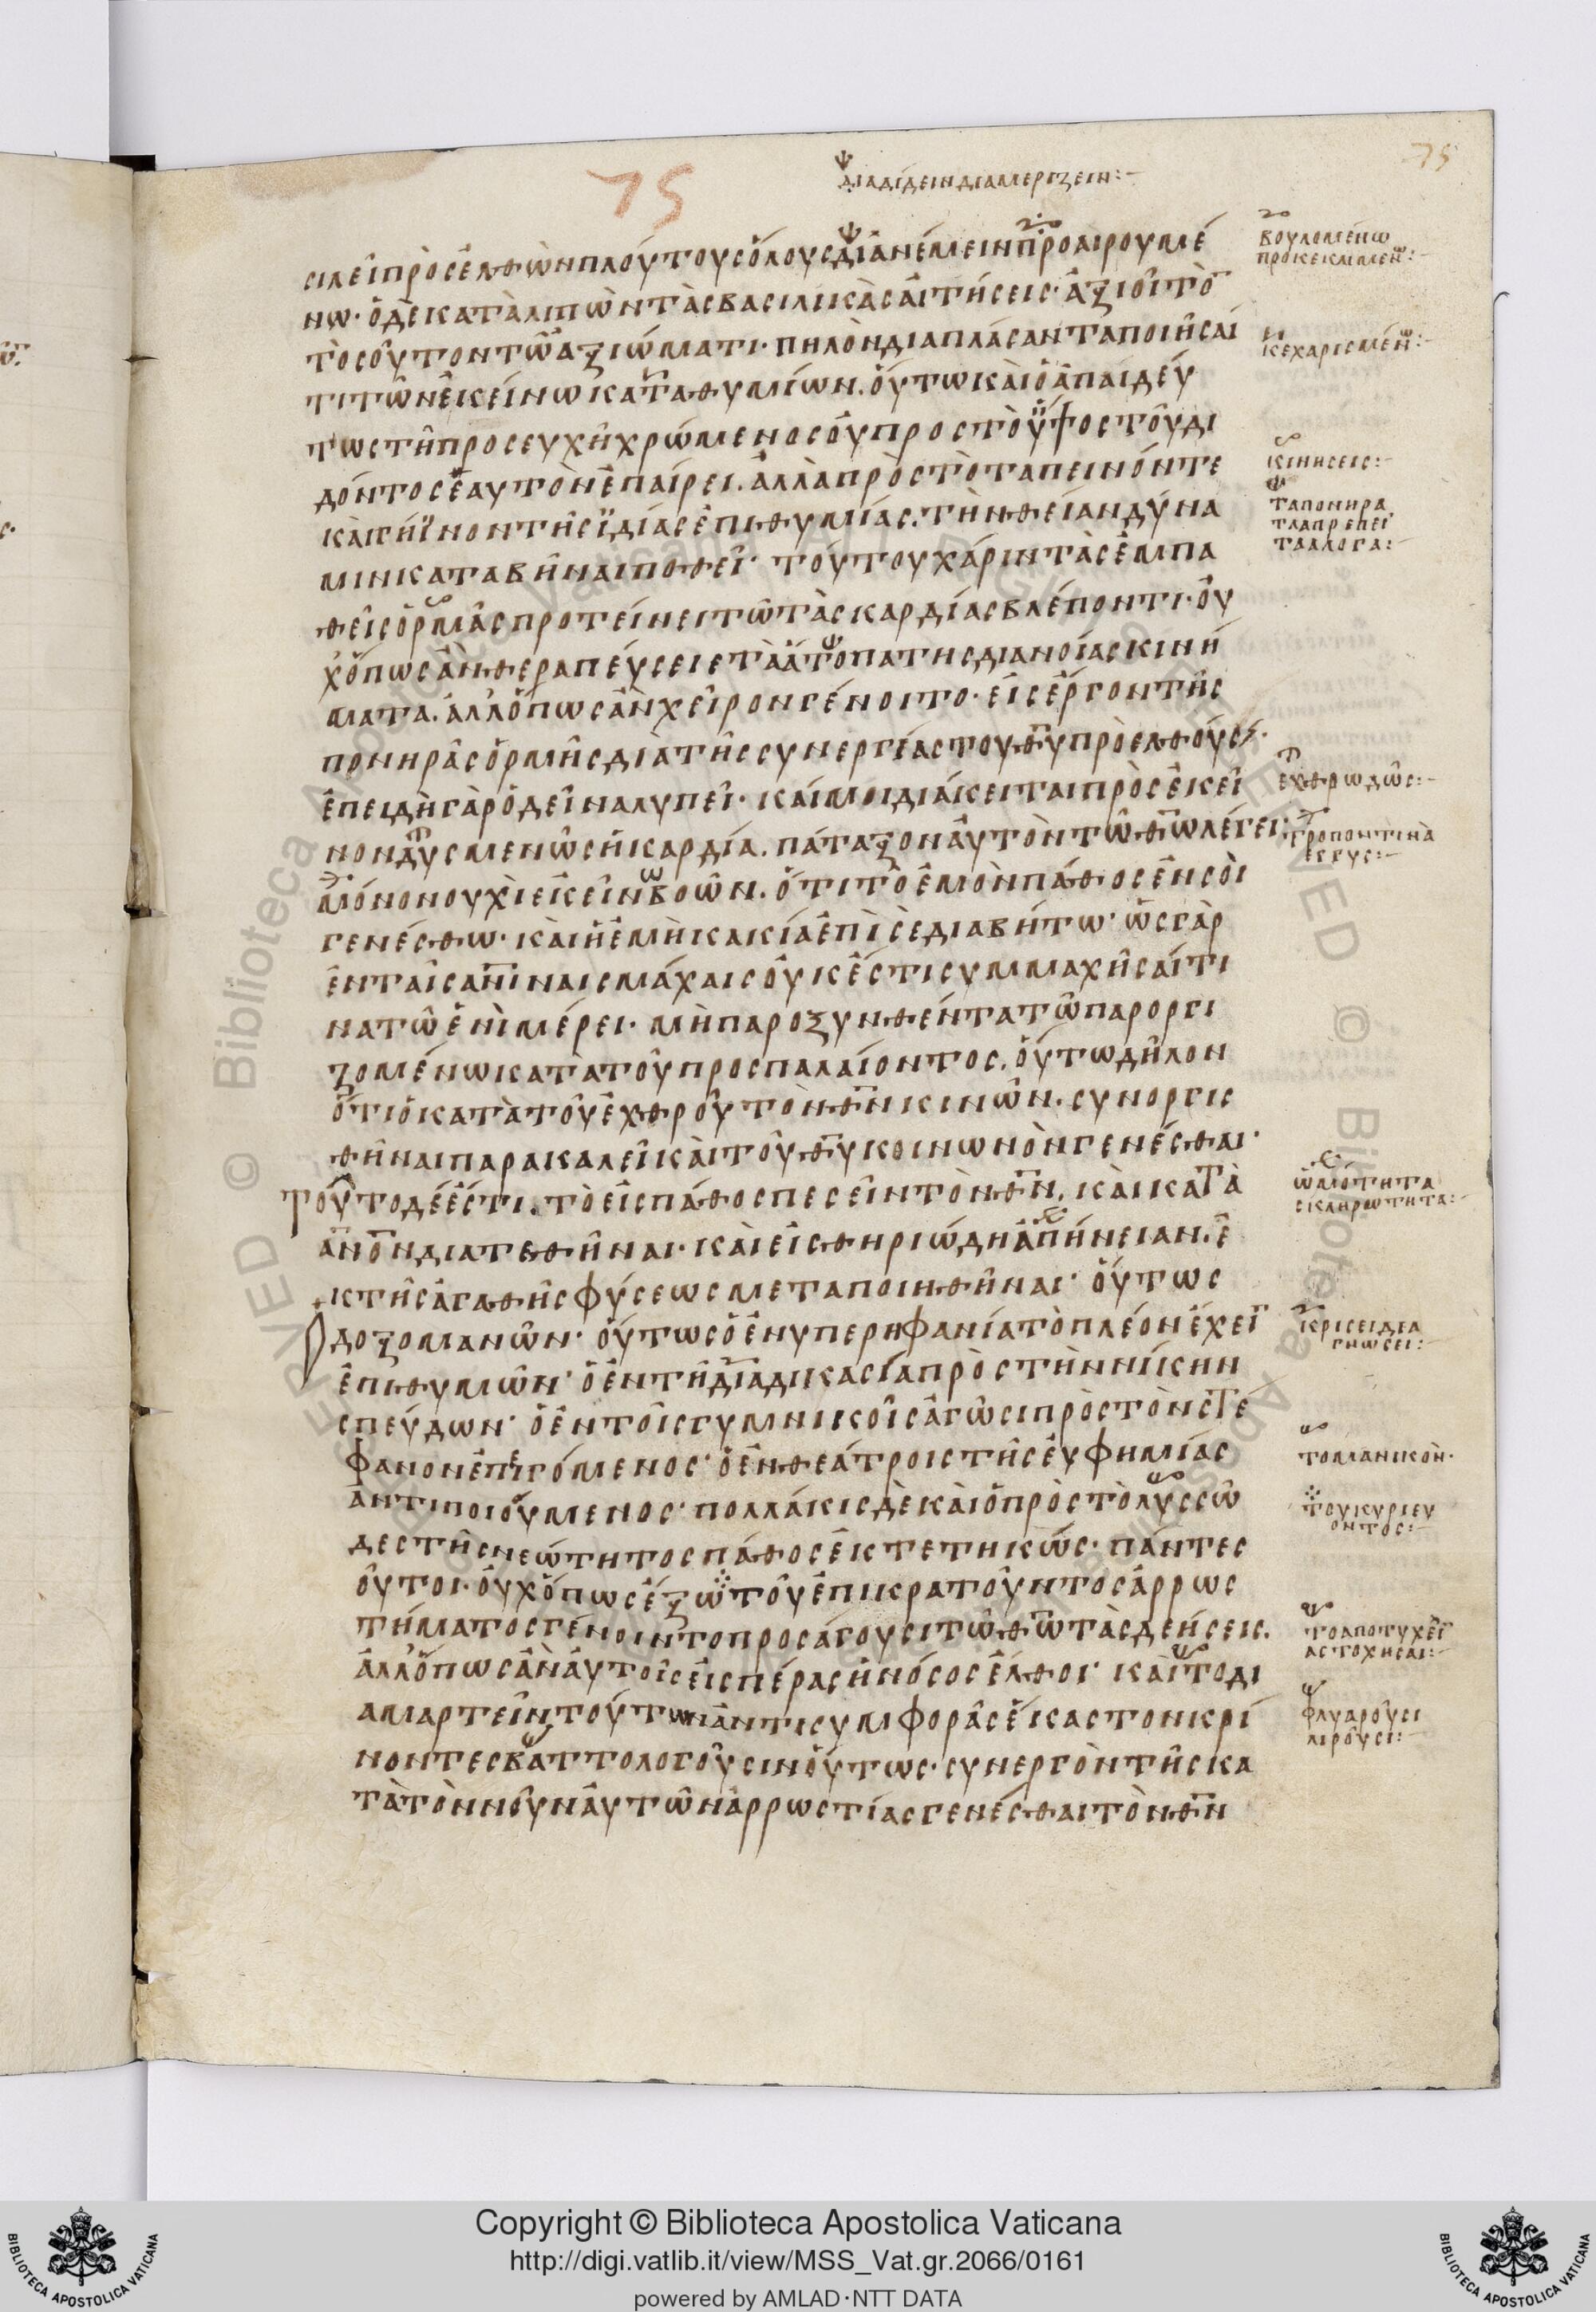 75
75
διαδίδειν διαμερίζειν:-
σιλεῖ προσελθὼν πλούτους ὅλους διανέμειν προαιρουμέ
νω· ὁ δὲ καταλιπὼν τὰς βασιλικὰς αἰτήσεις· ἀξιοῖ τὸ
τοσοῦτον τῶ ἀξιώματι· πηλὸν διαπλάσαντα ποιῆσαί
τι τῶν ἐκείνω καταθυμίων. οὕτω καὶ ὁ ἀπαιδεύ
τως τῆ προσευχῆ χρώμενος οὐ πρὸς τὸ ὕψος τοῦ δι
δόντος ἑαυτὸν ἐπαίρει. ἀλλὰ πρὸς τὸ ταπεινόν τε
καὶ γήϊνον τῆς ϊδίας ἐπιθυμίας. τὴν θείαν δύνα
μιν καταβῆναι ποθεῖ· τούτου χάριν τὰς ἐμπα
θεῖς ὁρμὰς προτείνει τῶ τὰς καρδίας βλέποντι· οὐ
χ ὅπως ἂν θεραπεύσειε τὰ ἄτοπα τῆς διανοίας κινή
ματα. ἀλλ' ὅπως ἂν χεῖρον γένοιτο· εἰς ἔργον τῆς
πονηρᾶς ὁρμῆς διὰ τῆς συνεργίας τοῦ θυ προελθούσης.
ἐπειδὴ γὰρ ὁ δεῖνα λυπεῖ· καί μοι διάκειται πρὸς ἐκεῖ
νον δυσμενῶς ἡ καρδία. πάταξον αὐτὸν τῶ θω λέγει·
μόνον οὐχὶ ἐκεῖν βοῶν. ὅτι τὸ ἐμὸν πάθος ἐν σοὶ
γενέσθω· καὶ ἡ ἐμὴ κακία ἐπὶ σὲ διαβήτω· ὡς γὰρ
ἐν ταῖς ανιναις μάχαις οὐκ ἔστι συμμαχῆσαί τι
να τῶ ἑνὶ μέρει· μὴ παροξυνθέντα τῶ παροργι
ζομένω κατὰ τοῦ προσπαλαίοντος. οὕτω δῆλον
ὅτι ὁ κατὰ τοῦ ἐχθροῦ τὸν θν κινῶν. συνοργισ
θῆναι παρακαλεῖ καὶ τοῦ θυ κοινωνὸν γενέσθαι·
τοῦτο δέ ἐστι. τὸ εἰς πάθος πεσεῖν τὸν θν. καὶ κατὰ
ανον διατεθῆναι. καὶ εἰς θηριώδη ἀπήνειαν. ἐ
κ τῆς ἀγαθῆς φύσεως μεταποιηθῆναι· οὕτως
ὁ δοξομανῶν· οὕτως ὁ ἐν υπερηφανία τὸ πλέον ἔχειν
ἐπιθυμῶν· ὁ ἐν τῆ διαδικασία πρὸς τὴν νίκην
σπεύδων· ὁ ἐν τοῖς γυμνικοῖς ἀγῶσι πρὸς τὸν στέ
φανον ἐπειγόμενος· ὁ ἐν θεάτροις τῆς εὐφημίας
ἀντιποιούμενος· πολλάκις δὲ καὶ ὁ πρὸς τὸ λυσσῶ
δες τῆς νεώτητος πάθος ἐκτετηκώς· πάντες
οὗτοι· οὐχ ὅπως ἔξω τοῦ ἐπικρατοῦντος ἀρρωσ
τήματος γένοιντο προσάγουσι τῶ θω τὰς δεήσεις.
ἀλλ' ὅπως ἂν αὐτοῖς εἰς πέρας ἡ νόσος ἔλθοι· καὶ τὸ δι
αμαρτεῖν τούτων ἀντὶ συμφορᾶς ἕκαστον κρί
νοντες βαττολογοῦσιν ὄντως· συνεργὸν τῆς κα
τὰ τὸν νοῦν αὐτῶν ἀρρωστίας γενέσθαι τὸν θν
βουλομένω
προκεκλιμένω:-
κεχαρισμένων:-
κινήσεις:-
τα πονηρα
τα απρεπεῖ
τα αλογα:-
εχθρωδῶς:-
τροπον τινὰ
εγγυς:-
ὠμότητα
σκληρωτητα:-
κρίσει δια
γνωσει:-
το μανικὸν·
του κυριευ
οντος:-
το αποτυχεῖν
αστοχησαι:-
φλυαροῦσι
λιροῦσι:-
Copyright © Biblioteca Apostolica Vaticana
http://digi.vatlib.it/view/MSS_Vat.gr.2066/0161
powered by AMLAD·NTT DATA
BIBLIOTECA APOSTOLICA VATICANA
BIBLIOTECA APOSTOLICA VATICANA